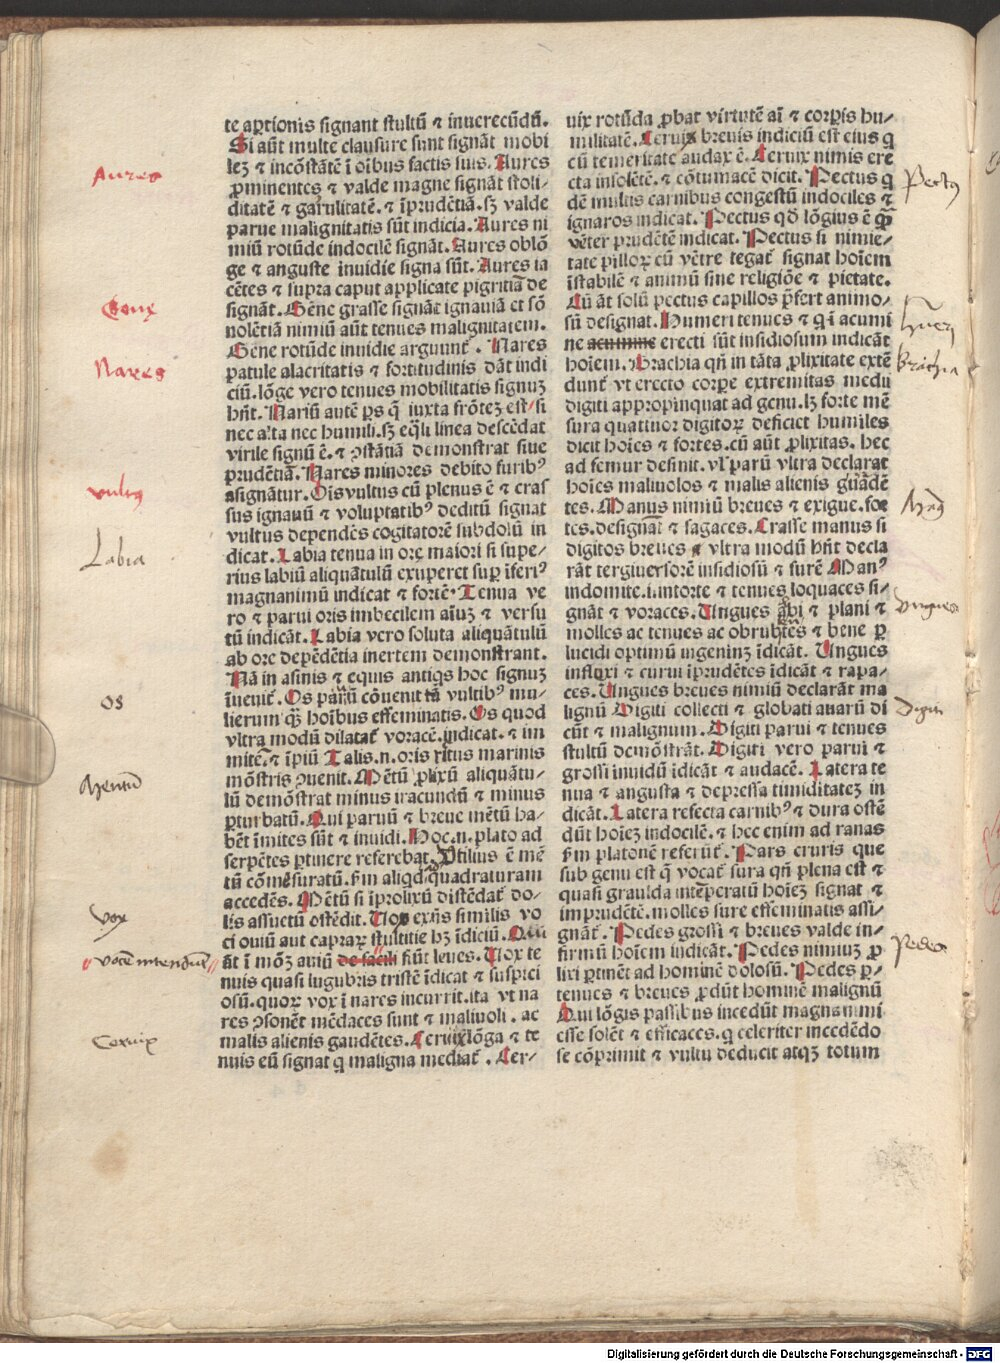 te aꝑtionis signant stultũ ⁊ inuerecũdũ.
Si aũt multe clausure sunt signãt mobi
leȝ ⁊ incõstãtẽ ĩ oĩbus factis suis. Aures
ꝓminentes ⁊ valde magne signãt stoli-
ditatẽ ⁊ garrulitatẽ. ⁊ ĩprudẽtiã. sȝ valde
parue malignitatis sũt indicia. Aures ni
miũ rotũde indocilẽ signãt. Aures oblõ
ge ⁊ anguste inuidie signa sũt. Aures ia
cẽtes ⁊ supra caput applicate pigritiã de
signãt. Gẽne grasse signãt ignauiã et sõ
nolẽtiã nimiũ aũt tenues malignitatem.
Gẽne rotũde inuidie arguunt᷑. Nares
patule alacritatis ⁊ fortitudinis dãt indi
ciũ. lõge vero tenues mobilitatis signuȝ
hñt. Nariũ autẽ ꝑs q̃ iuxta frõteȝ est/ si
nec alta nec humili. sȝ eq̃li linea descẽdat
virile signũ ẽ. ⁊ ꝯstãtiã demonstrat siue
prudẽtiã. Nares minores debito furibꝰ
asignãtur. Oĩs vultus cũ plenus ẽ ⁊ cras
sus ignauũ ⁊ voluptatibꝰ deditũ signat
vultus dependẽs cogitatorẽ subdolũ in
dicat. Labia tenua in ore maiori si supe-
rius labiũ aliquãtulũ exuperet suꝑ ĩferiꝰ
magnanimũ indicat ⁊ fortẽ. Tenua ve
ro ⁊ parui oris imbecilem aĩuȝ ⁊ versu
tũ indicãt. Labia vero soluta aliquãtulũ
ab ore depẽdẽtia inertem demonstrant.
Nã in asinis ⁊ equis antiqꝰ hoc signuȝ
ĩuenit᷑. Os paruũ cõuenit tã vultibꝰ mu-
lierum q̃ȝ hoĩbus effeminatis. Os quod
vltra modũ dilatat᷑ voracẽ. indicat. ⁊ im
mitẽ. ⁊ ĩpiũ Talis .n. oris ritus marinis
mõstris ꝯuenit. Mẽtũ ꝓlixũ aliquãtu-
lũ demõstrat minus iracundũ ⁊ minus
ꝑturbatũ. Qui paruũ ⁊ breue mẽtũ ha-
bẽt ĩmites sũt ⁊ inuidi. Hoc .n. plato ad
serpẽtes ꝑtinere referebat. Vtilius ẽ mẽ
tũ cõmẽsuratũ. ẜm aliqd̃ quadraturam
accedẽs. Mẽtũ si ĩprolixũ distẽdat᷑ do-
lis assuetũ ostẽdit. Uox exĩis similis vo
ci ouiũ aut capraꝝ stultitie hȝ ĩdiciũ. Qui
ãt ĩ mõȝ auiũ de facili fiũt leues. Uox te
nuis quasi lugubris tristẽ ĩdicat ⁊ suspici
osũ. quoꝝ vox ĩ nares incurrit. ita vt na
res ꝯsonẽt mẽdaces sunt ⁊ maliuoli. ac
malis alienis gaudẽtes. Ceruix lõga ⁊ te
nuis eũ signat q maligna mediat᷑. Cer-
uix rotũda ꝓbat virtutẽ aĩ ⁊ corꝑis hu-
militatẽ. Ceruix breuis indiciũ est eius q
cũ temeritate audax ẽ. Ceruix nimis ere
cta insolẽtẽ. ⁊ cõtumacẽ dicit. Pectus q
dẽ multis carnibus congestũ indociles ⁊
ignaros indicat. Pectus qd̃ lõgius ẽ q̃ȝ
vẽter prudẽtẽ indicat. Pectus si nimie-
tate pilloꝝ cũ vẽtre tegat᷑ signat hoĩem
ĩstabilẽ ⁊ animũ sine religiõe ⁊ pietate.
Cũ ãt solũ pectus capillos ꝓfert animo-
sũ designat. Humeri tenues ⁊ qͥ ĩ acumi
ne acumine erecti sũt insidiosum indicãt
hoĩem. Brachia qñ in tãta ꝓlixitate extẽ
dunt᷑ vt erecto corꝑe extremitas medii
digiti appropinquat ad genu. lȝ forte mẽ
sura quatuor digitoꝝ deficiet humiles
dicit hoĩes ⁊ fortes. cũ aũt ꝓlixitas. hec
ad femur definit. vl᷑ parũ vltra declarat
hoĩes maliuolos ⁊ malis alienis gaudẽ
tes. Manus nimiũ breues ⁊ exigue. for
tes. designat ⁊ sagaces. Crasse manus si
digitos breues ⁊ vltra modũ hñt decla
rãt tergiuersorẽ insidiosũ ⁊ furẽ Manꝰ
indomite. intorte ⁊ tenues loquaces si-
gnãt ⁊ voraces. Ungues albi ⁊ plani ⁊
molles ac tenues ac obrubẽtes ⁊ bene ꝑ
lucidi optimũ ingeniuȝ ĩdicãt. Ungues
influxi ⁊ curui ĩprudẽtes ĩdicãt ⁊ rapa-
ces. Ungues breues nimiũ declarãt ma
lignũ Digiti collecti ⁊ globati auarũ di
cũt ⁊ malignum. Digiti parui ⁊ tenues
stultũ demõstrãt. Digiti vero parui ⁊
grossi inuidũ ĩdicãt ⁊ audacẽ. Latera te
nua ⁊ angusta ⁊ depressa timiditateȝ in
dicãt. Latera refecta carnibꝰ ⁊ dura ostẽ
dũt hoĩeȝ indocilẽ. ⁊ hec enim ad ranas
ẜm platonẽ referũt᷑. Pars cruris que
sub genu est q̃ vocat᷑ sura qñ plena est ⁊
quasi grauida intẽperatũ hoĩeȝ signat ⁊
imprudẽtẽ. molles sure effeminatis assi-
gnãt᷑. Pedes grossi ⁊ breues valde in-
firmũ hoĩem indicãt. Pedes nimiuȝ ꝓ
lixi ꝑtinẽt ad hominẽ dolosũ. Pedes ꝑ-
tenues ⁊ breues ꝓdũt hominẽ malignũ
Qui lõgis passibus incedũt magnanimi
esse solẽt ⁊ efficaces. q celeriter incedẽdo
se cõprimit ⁊ vultũ deducit atqȝ totum
Aures
Genꝫ
Nares
vultꝰ
Labia
os
Mentũ
vox
vocem intendũt
Cervix
Pectꝰ
Hũeri
Brachia
Manꝰ
vngues
Digiti
Pedes
Digitalisierung gefördert durch die Deutsche Forschungsgemeinschaft - DFG